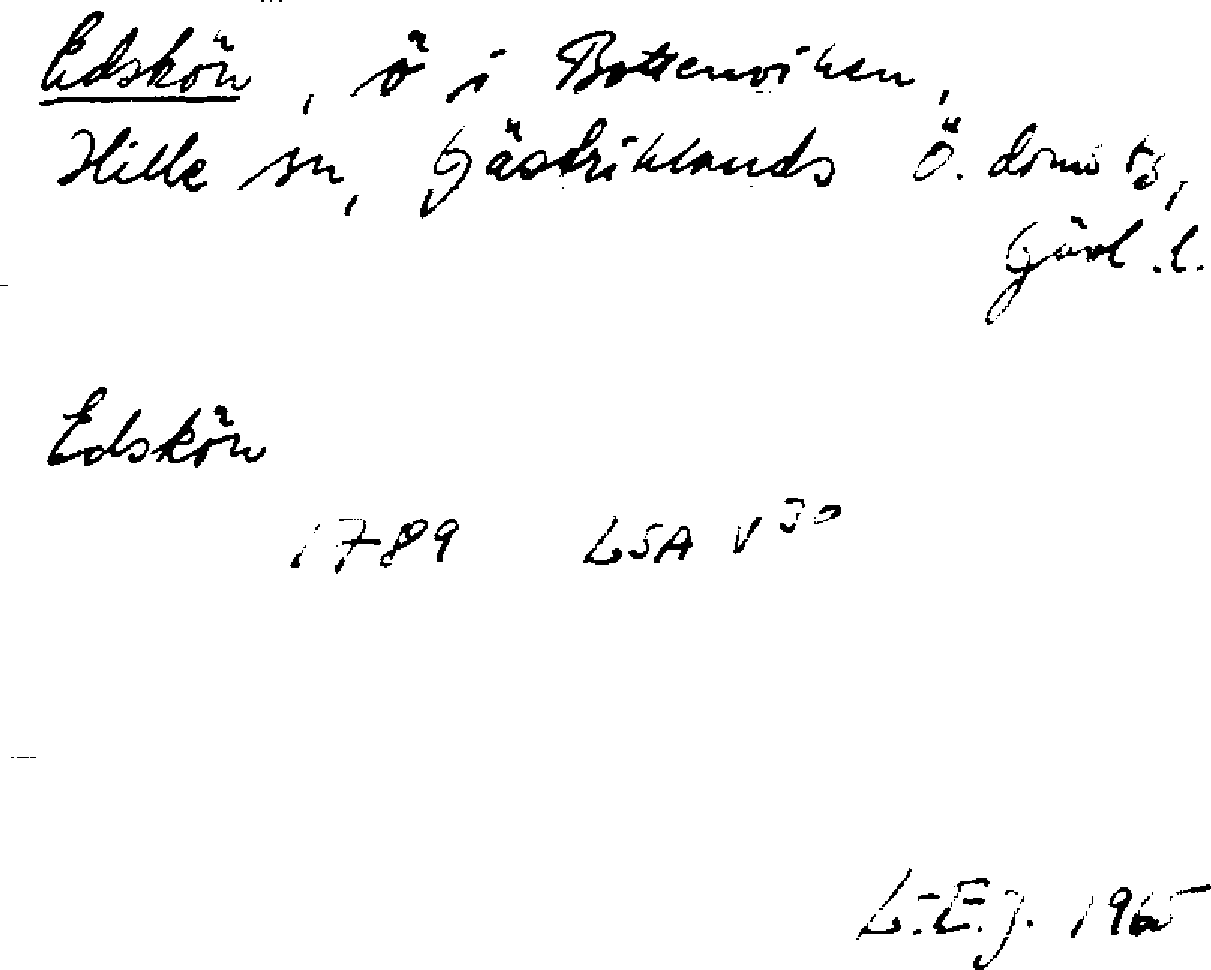 Edskön, ö i Bottenviken,
Hille sn, Gästriklands Ö. doms tg,
Gävl. l.
Edskön
1789 LSA V 30
L.E.J. 1965